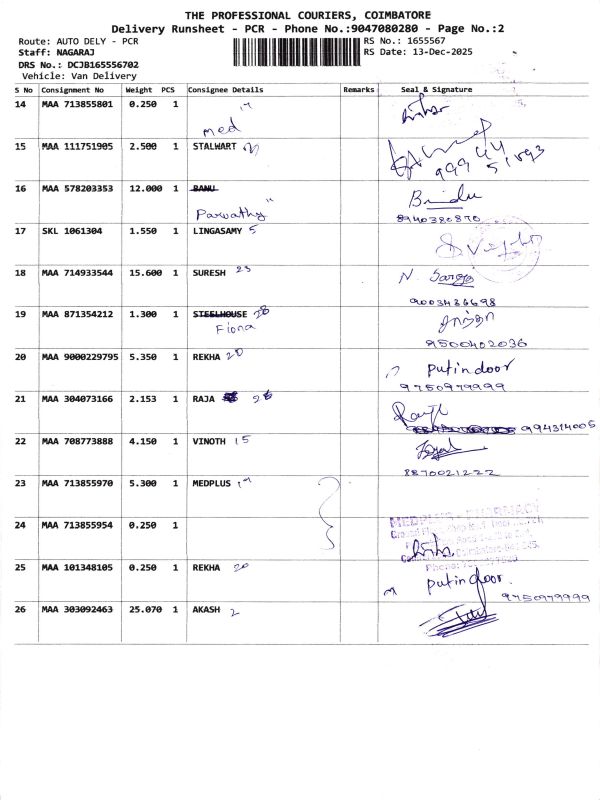 THE PROFESSIONAL COURIERS, COIMBATORE
Delivery Runsheet - PCR - Phone No.:9047080280 - Page No.:2
Route: AUTO DELY - PCR
RS No.: 1655567
Staff: NAGARAJ
RS Date: 13-Dec-2025
DRS No.: DCJB165556702
Vehicle: Van Delivery
S No Consignment No Weight PCS Consignee Details Remarks Seal & Signature
14 MAA 713855801 0.250 1
med
15 MAA 111751905 2.500 1 STALWART
99944 51893
16 MAA 578203353 12.000 1 BANU
Parvathy
Bindu
8940380870
17 SKL 1061304 1.550 1 LINGASAMY 5
18 MAA 714933544 15.600 1 SURESH 25
N.
9003436698
19 MAA 871354212 1.300 1 STEELHOUSE 28
Fiona
சாந்தா
9500402036
20 MAA 9000229795 5.350 1 REKHA 20
putindoor
9750979999
21 MAA 304073166 2.153 1 RAJA 26
994314005
22 MAA 708773888 4.150 1 VINOTH 15
8870021222
23 MAA 713855970 5.300 1 MEDPLUS
24 MAA 713855954 0.250 1
MEDPLUS - PHARMACY
25 MAA 101348105 0.250 1 REKHA 20
putindoor.
9750979999
26 MAA 303092463 25.070 1 AKASH 2